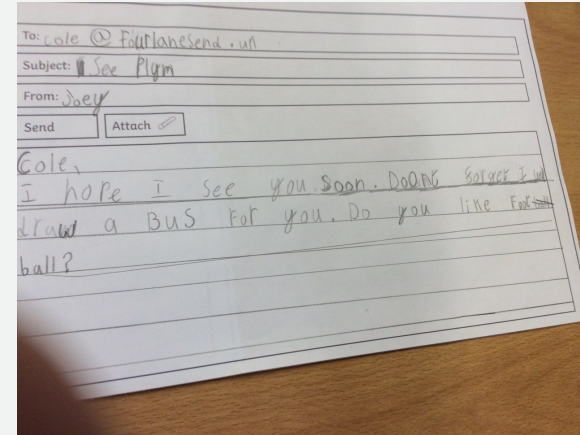 To: cole @ Fourlanesend.un
Subject: See Plym
From: Joey
Send Attach
Cole,
I hope I see you soon. DOONt forget I will
draw a BUS For you. Do you like Foot
ball?